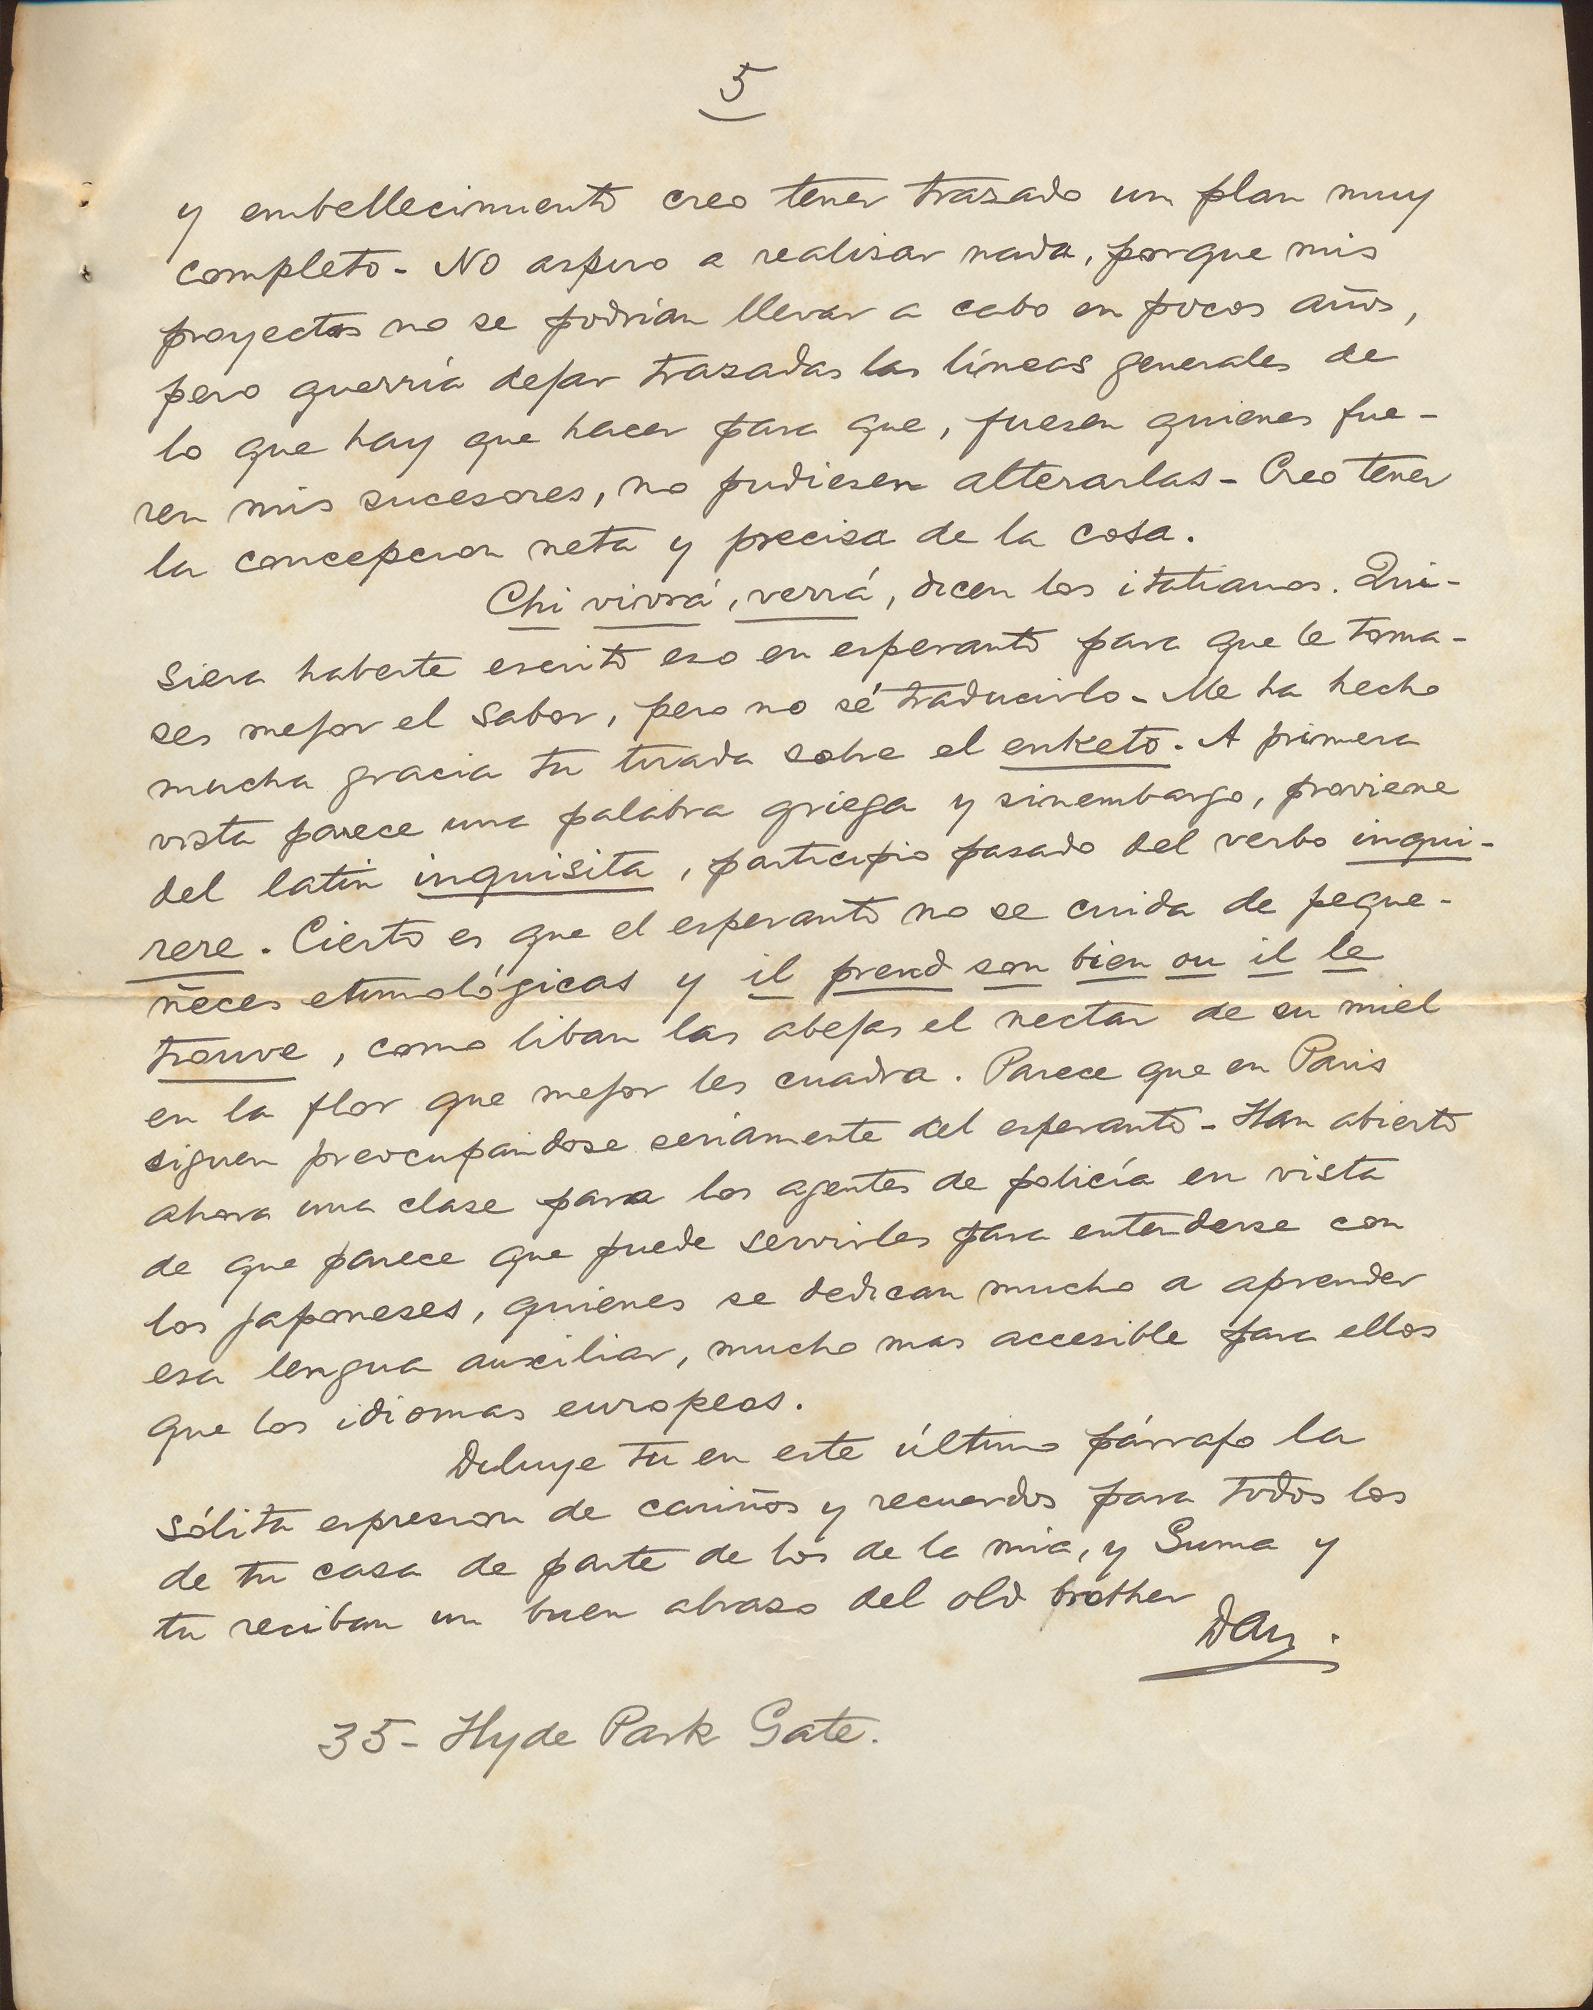 5
y embellecimiento creo tener trazado un plan muy
completo - No aspiro a realisar nada, porque mis
proyectos no se podrian llevar a cabo en pocos años,
pero querría dejar trazadas las líneas generales de
lo que hay que hacer para que, fuesen quienes fue-
ren mis sucesores, no pudiesen alterarlas - Creo tener
la concepcion neta y precisa de la cosa.
Chi vivrá, verrá, dicen los italianos. Qui-
siera haberte escrito eso en esperanto para que le toma-
ses mejor el sabor, pero no sé traducirlo - Me ha hecho
mucha gracia tu tirada sobre el enketo. A primera
vista parece una palabra griega y sinembargo, proviene
del latin inquisita, participio pasado del verbo inqui-
rere. Cierto es que el esperanto no se cuida de peque-
ñeces etimológicas y il prend son bien ou il le
trouve, como liban las abejas el nectar de su miel
en la flor que mejor les cuadra. Parece que en Paris
siguen preocupándose seriamente del esperanto - Han abierto
ahora una clase para los agentes de policía en vista
de que parece que puede servirles para entenderse con
los japoneses, quienes se dedican mucho a aprender
esa lengua auxiliar, mucho mas accesible para ellos
que los idiomas europeos.
Diluye tu en este último párrafo la
sólita espresion de cariños y recuerdos para todos los
de tu casa de parte de los de la mia, y Suma y
tu reciban un buen abrazo del old brother
Dan.
35 - Hyde Park Gate.